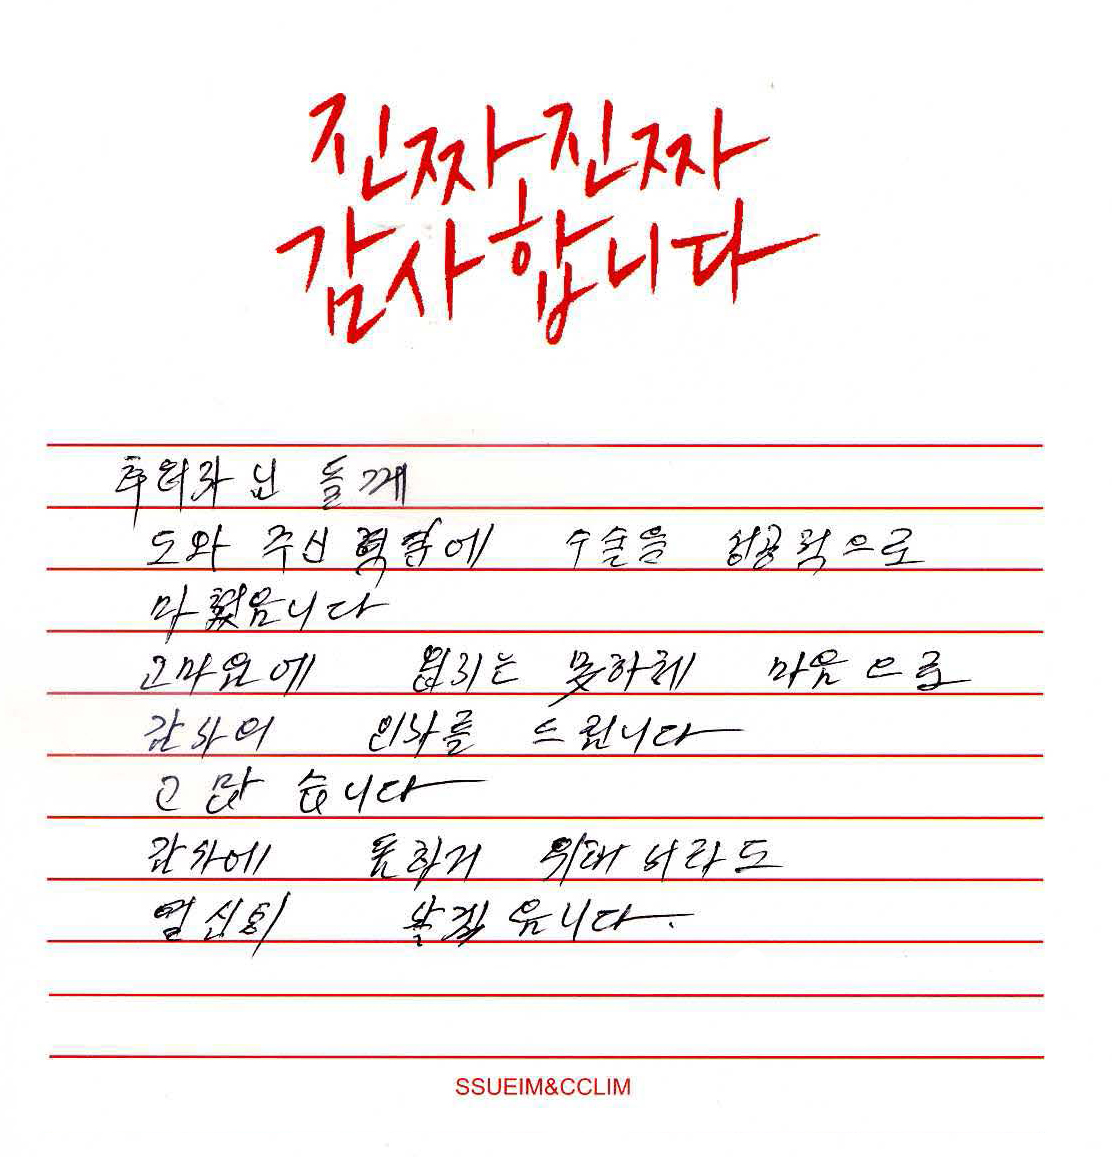 진짜 진짜
감사합니다
후원자 님 들께
도와 주신 덕분에 수술을 성공적으로
마쳤읍니다
고마움에 되는 못하체 마음으로
감사의 인사를 드립니다
고 맙 습니다
감사에
열심히 살겠읍니다.
SSUEIM&CCLIM